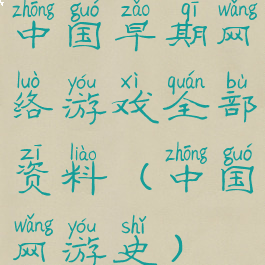 zhōng guó zǎo qī wǎng
中国早期网
luò yóu xì quán bù
络游戏全部
zī liào zhōng guó
资料（中国
wǎng yóu shǐ
网游史）